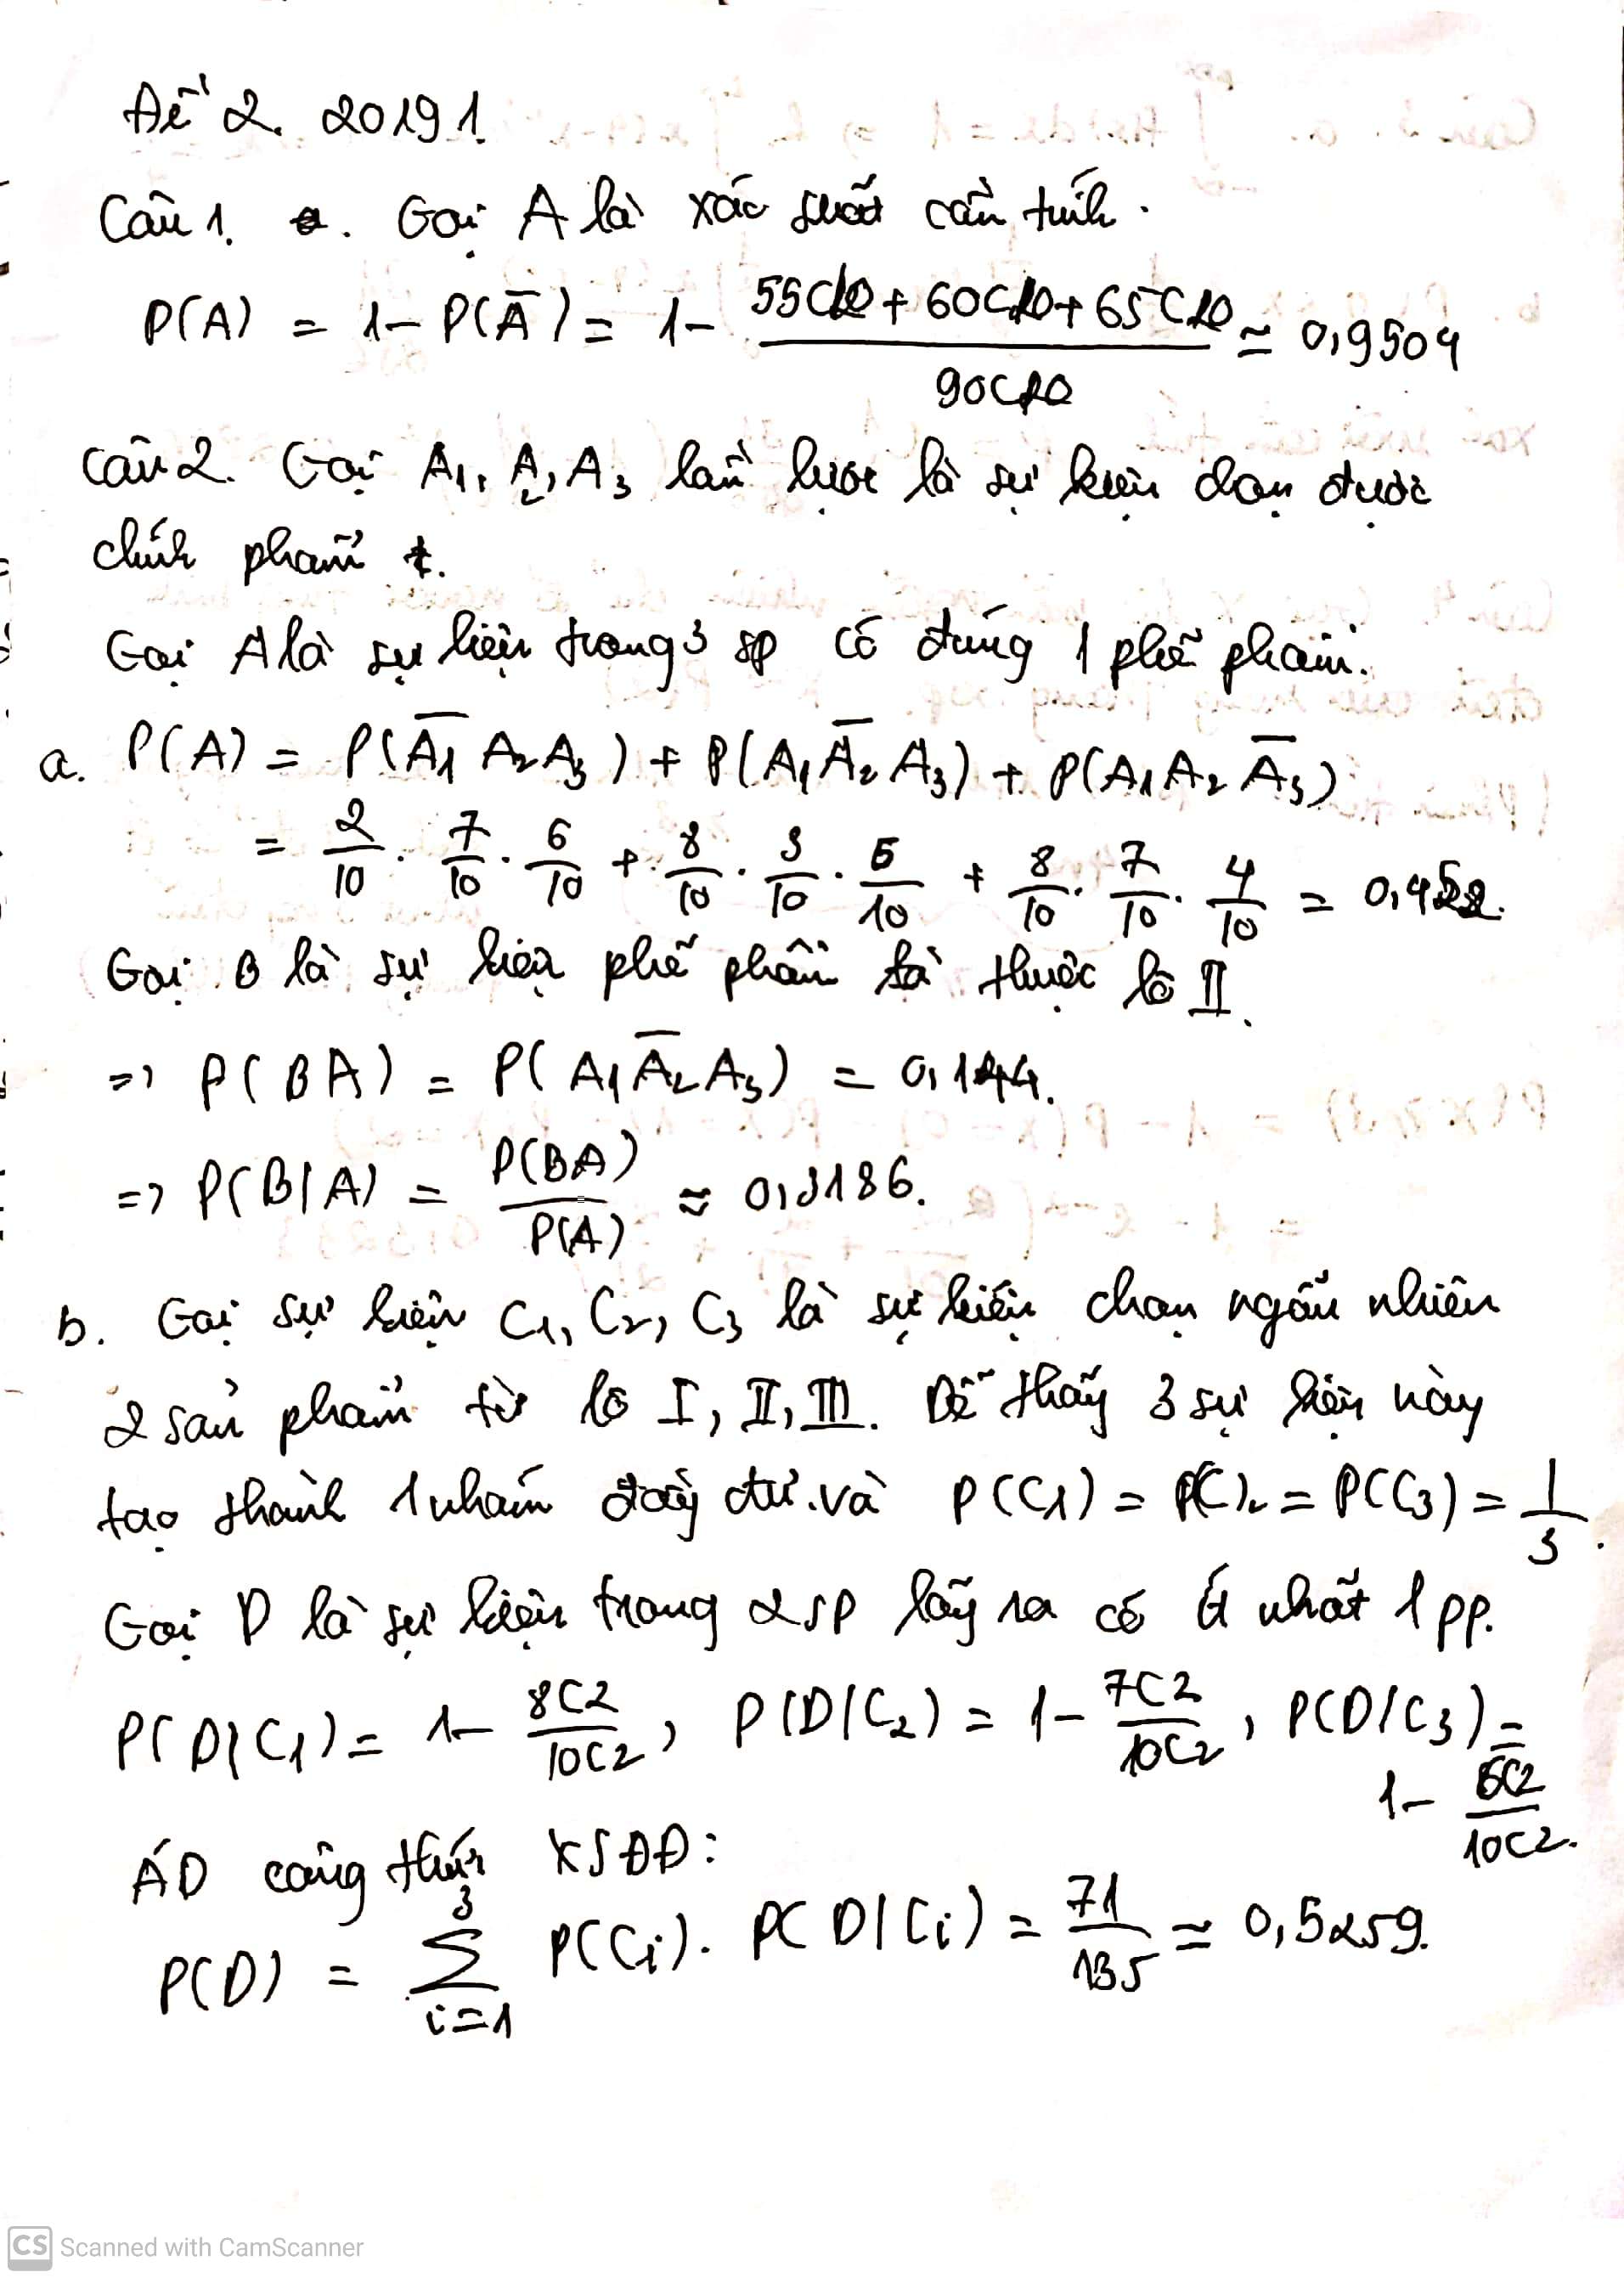 Đề 2. 20191.
Câu 1. a. Gọi A là xác suất cần tính.
P(A) = 1 - P(Ā) = 1 - (55C10 + 60C10 + 65C10)/90C10 ≃ 0,9504
Câu 2. Gọi A₁, A₂, A₃ lần lượt là sự kiện chọn được
chính phẩm.
Gọi A là sự kiện trong 3 sp có đúng 1 phế phẩm.
a. P(A) = P(Ā₁ A₂ A₃) + P(A₁ Ā₂ A₃) + P(A₁ A₂ Ā₃)
= 2/10 · 7/10 · 6/10 + 8/10 · 3/10 · 6/10 + 8/10 · 7/10 · 4/10 = 0,452.
Gọi B là sự kiện phế phẩm là thuộc lô II.
=> P(BA) = P(A₁ Ā₂ A₃) = 0,144.
=> P(B|A) = P(BA)/P(A) ≈ 0,3186.
b. Gọi sự kiện C₁, C₂, C₃ là sự kiện chọn ngẫu nhiên
2 sản phẩm từ lô I, II, III. Dễ thấy 3 sự kiện này
tạo thành 1 nhóm đầy đủ và P(C₁) = P(C)₂ = P(C₃) = 1/3.
Gọi D là sự kiện trong 2 sp lấy ra có ít nhất 1 pp.
P(D|C₁) = 1 - 8C2/10C2, P(D|C₂) = 1 - 7C2/10C2, P(D|C₃) =
1 - 6C2/10C2.
ÁD công thức XSĐĐ:
P(D) = 3 Σ i=1 P(Ci). P(D|Ci) = 71/135 ≃ 0,5259.
CS Scanned with CamScanner